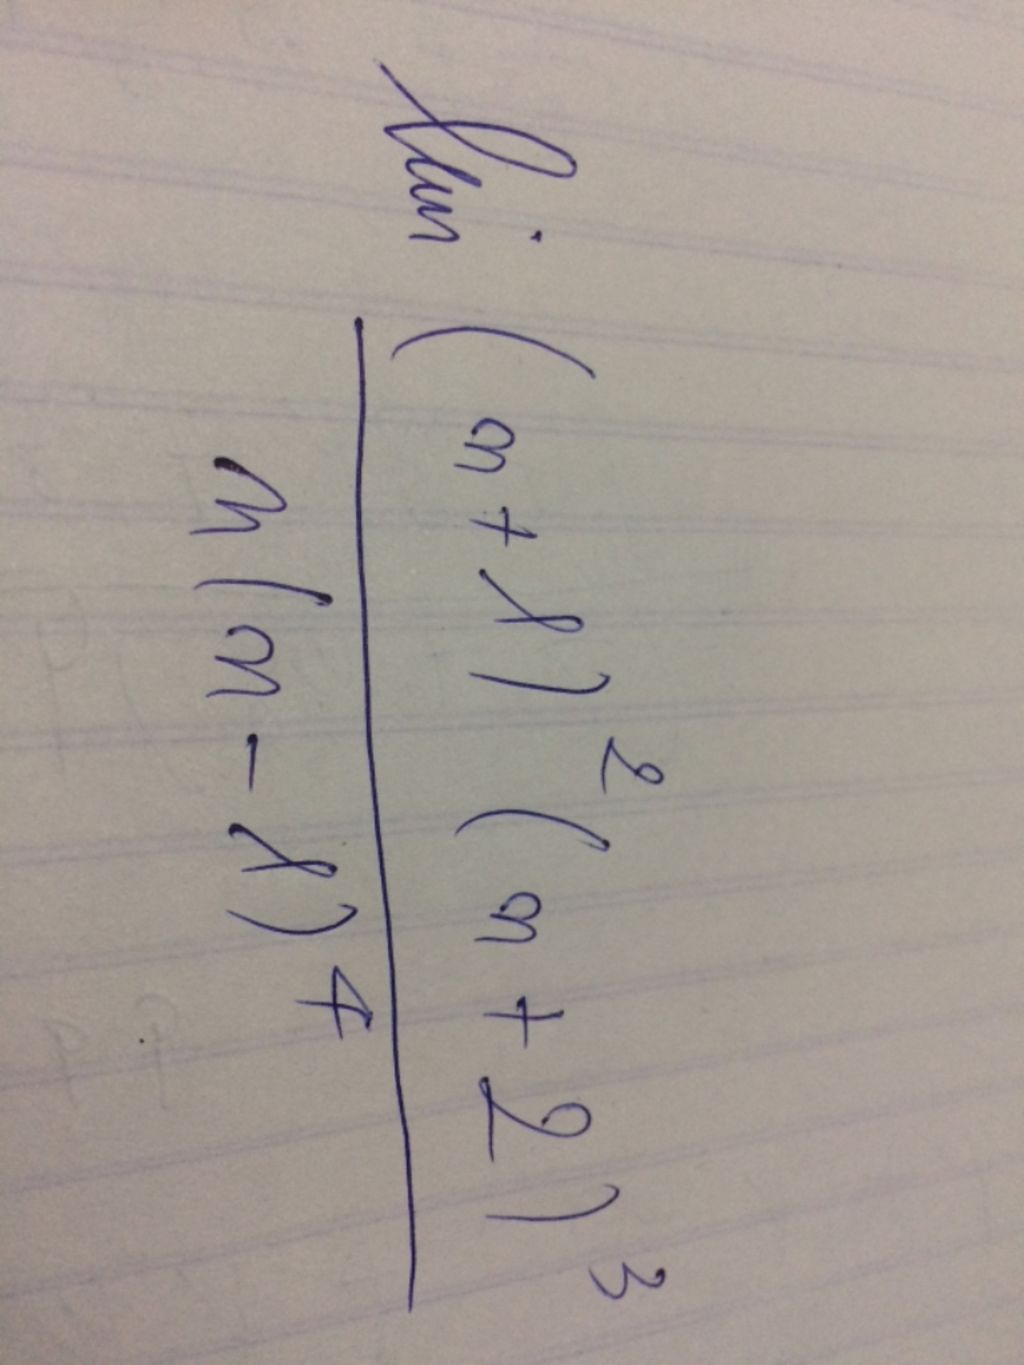 lim (n+1)² (n+2)³
n(n-1)⁴